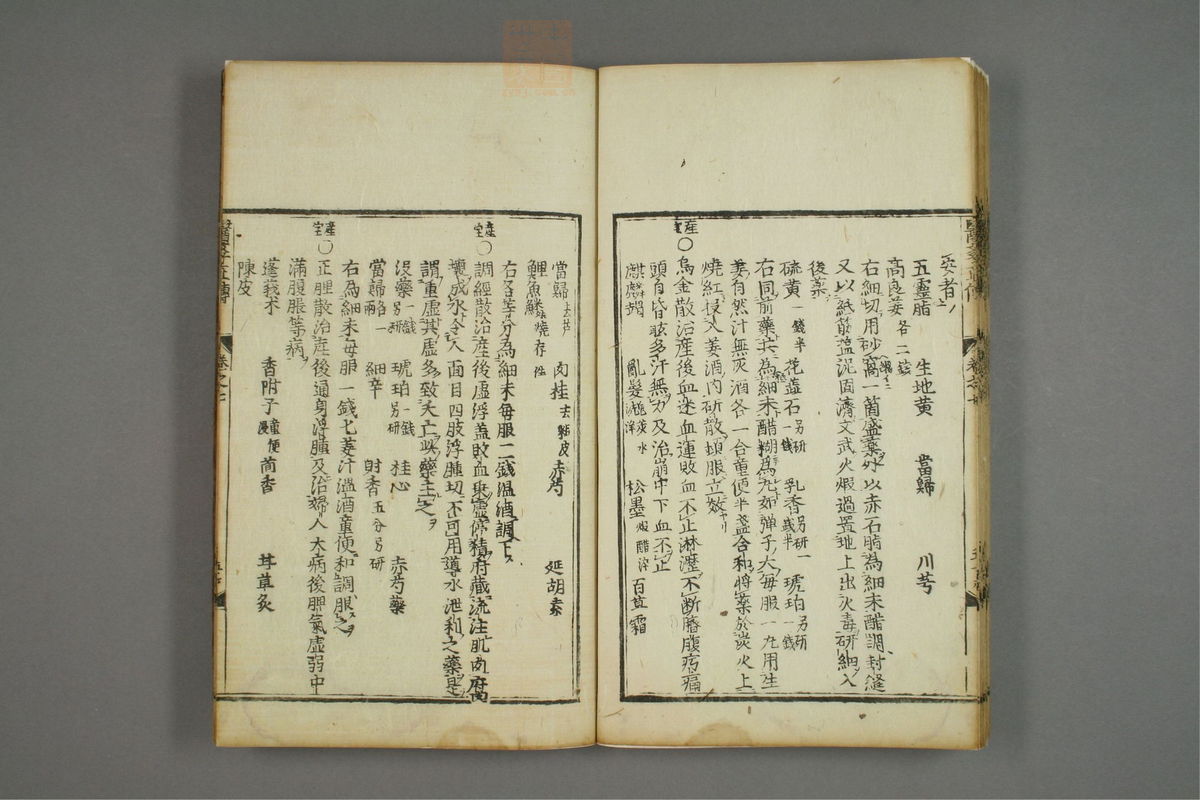 妥者
五靈脂 生地黄 當歸 川芎
高良薑 各二錢
右細切用砂窩一箇盛藥外以赤石脂為細末醋調封縫
又以紙筋塩泥固濟文武火煆過置地上出火毒研細入
後藥
硫黄 一錢半 花蕊石 另研一錢 乳香 另研一錢半 琥珀 另研一錢
右同前藥共為細末醋糊為丸如彈子大每服一丸用生
姜自然汁無灰酒各一合童便半盞合和將藥於炭火上
燒紅投入姜酒内研散頓服立效
産宝
〇烏金散治産後血迷血運敗血不止淋瀝不断臍腹疞痛
頭目昏眩多汗無力及治崩中下血不止
麒麟竭 亂髮 松墨 煆醋淬 百草霜
當歸 去芦 肉桂 去麁皮 赤芍 延胡索
鯉魚鱗 燒存性
右各等分為細末每服二錢温酒調下
産宝
〇調經散治産後虛浮盖敗血乗虛停積府藏流注肌肉腐
壞成水令人面目四肢浮腫切不可用導水泄利之藥是
謂重虛其虛多致夭亡此藥主之
没藥 另研一錢 琥珀 另研一錢 桂心 赤芍藥
當歸 各一兩 細辛 射香 五分另研
右為細末每服一錢七姜汁温酒童便和調服之
産宝
〇正脾散治産後通身浮腫及治婦人大病後脾氣虛弱中
滿腹脹等病
蓬莪术 香附子 童便浸 茴香 甘草炙
陳皮
醫學正傳 卷之七